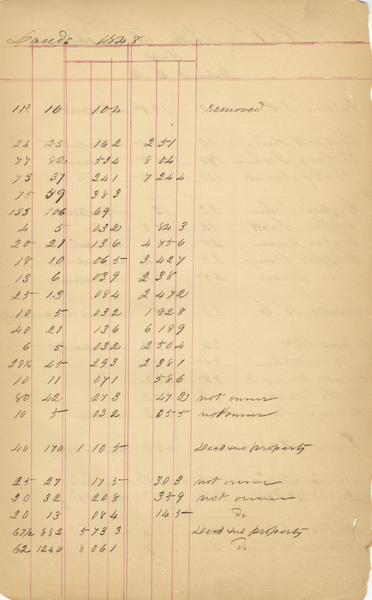 Lands 1828
112 16 102 removed
24 25 162 251
77 82 534 804
73 37 241 7244
75 59 383
153 106 69
4 5 032 843
20 21 136 4756
18 10 065 3427
13 6 039 238
25 13 084 2472
10 5 032 1928
40 21 136 6189
6 5 032 2504
28½ 45 293 2381
10 11 071 586
80 42 273 472 not owner
10 5 032 055 not owner
40 170 1105 Dead and property
25 27 175 302 not owner
20 32 208 359 not owner
20 13 084 145 do
67½ 882 5733 Dead and property
62 1240 8061 do